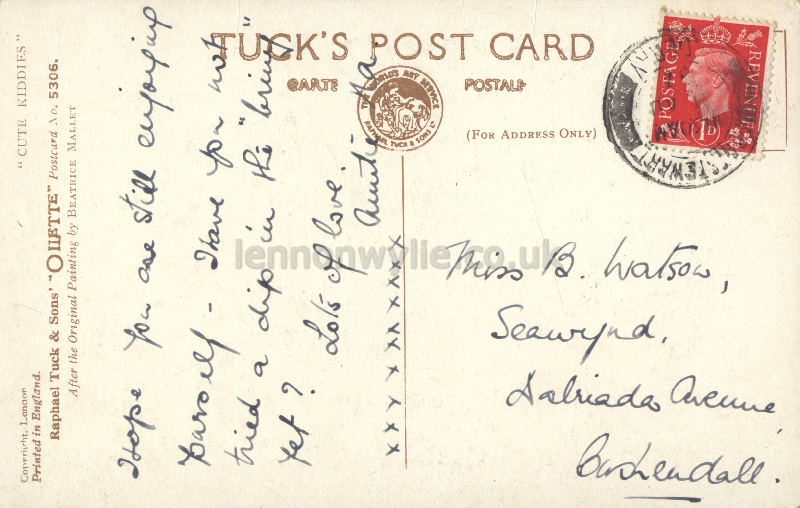 TUCK'S POST CARD
CARTE POSTALE
THE WORLD'S ART SERVICE
RAPHAEL TUCK & SONS LTD
(FOR ADDRESS ONLY)
POSTAGE
REVENUE
1D
STEWARTSTOWN
"CUTE KIDDIES"
Raphael Tuck & Sons' "OILETTE" Postcard No. 5306.
After the Original Painting by BEATRICE MALLET
Copyright, London
Printed in England.
Hope you are still enjoying
yourself - Have you not
tried a dip in the "briny"
yet? Lots of love.
Auntie
xxxxxxxxx
Miss B. Watson,
Seawynd,
Dalriada Avenue,
Cushendall.
lennonwylie.co.uk